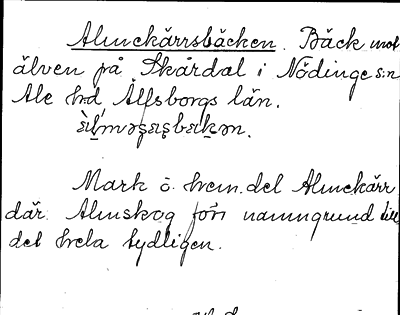 Almekärrsbäcken. Bäck mot
älven på Skårdal i Nödinge sn
Ale hd, Älfsborgs län.

Mark o. hem. del Almekärr
där Almskog förr namngrund till
det hela tydligen.